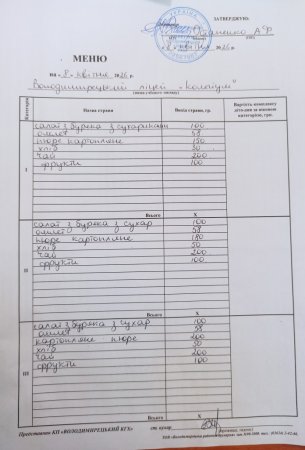 ЗАТВЕРДЖУЮ:
Остапенко А Ф
МЕНЮ
на «8» квітня 2026 р.
Володимирецький ліцей "Колегіум"
Категорія
Назва страви
Вихід страви, гр.
Вартість комплексу
I
салат з буряка з сухариками 100
омлет 58
пюре картопляне 150
хліб 50
чай 200
фрукти 100
Всього X
II
салат з буряка з сухар 100
омлет 58
пюре картопляне 180
хліб 50
чай 200
фрукти 100
Всього X
III
салат з буряка з сухар 100
омлет 58
картопляне пюре 200
хліб 50
чай 200
фрукти 100
Всього X
Представник КП «ВОЛОДИМИРЕЦЬКИЙ КГХ» ст. кухар